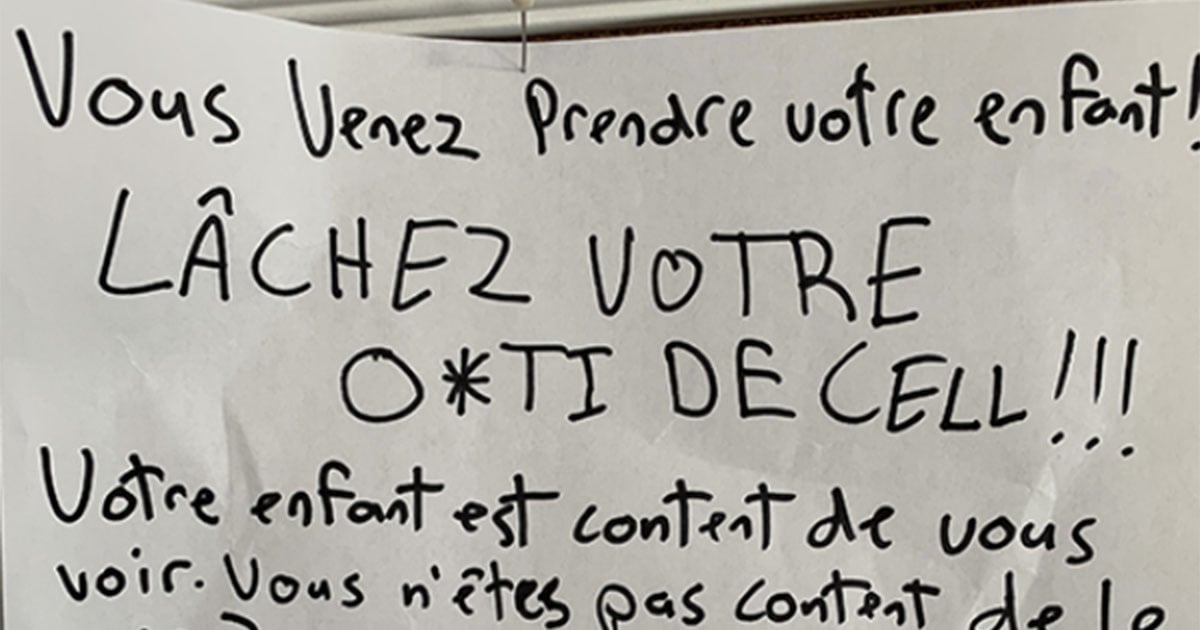 Vous Venez Prendre votre enfant!
LÂCHEZ VOTRE
O*TI DE CELL!!!
Votre enfant est content de vous
voir. Vous n'êtes pas content de le